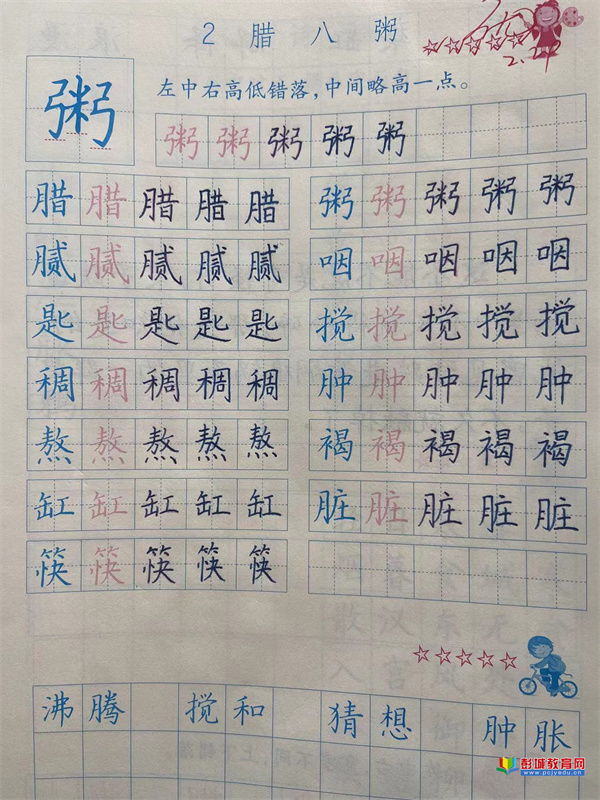 2 腊八粥
2.22
左中右高低错落，中间略高一点。
粥 粥粥粥粥粥
腊腊腊腊腊 粥粥粥粥粥
腻腻腻腻腻 咽咽咽咽咽
匙匙匙匙匙 搅搅搅搅搅
稠稠稠稠稠 肿肿肿肿肿
熬熬熬熬熬 褐褐褐褐褐
缸缸缸缸缸 脏脏脏脏脏
筷筷筷筷筷
沸腾 搅和 猜想 肿胀
彭城教育网
www.pcjyedu.cn